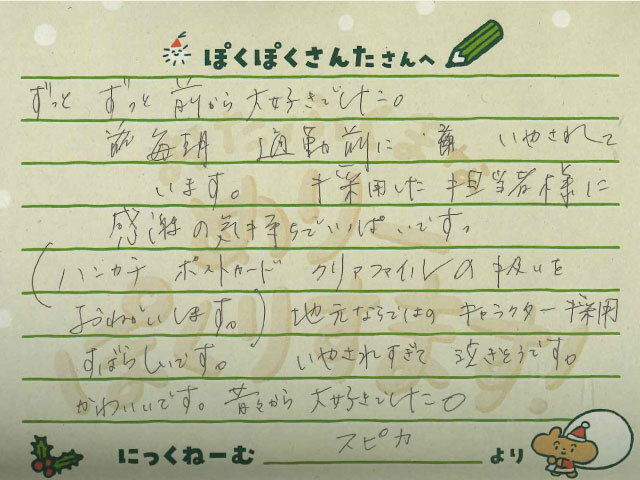 ぽくぽくさんたさんへ
ずっと ずっと 前から 大好きでした。
毎朝 通勤前に いやされて
います。 採用した 担当者様に
感謝の気持ちでいっぱいです。
(ハンカチ ポストカード クリアファイルの扱いを
おねがいします。) 地元ならではの キャラクター採用
すばらしいです。 いやされすぎて 泣きそうです。
かわいいです。昔から 大好きでした。
スピカ
にっくねーむ より